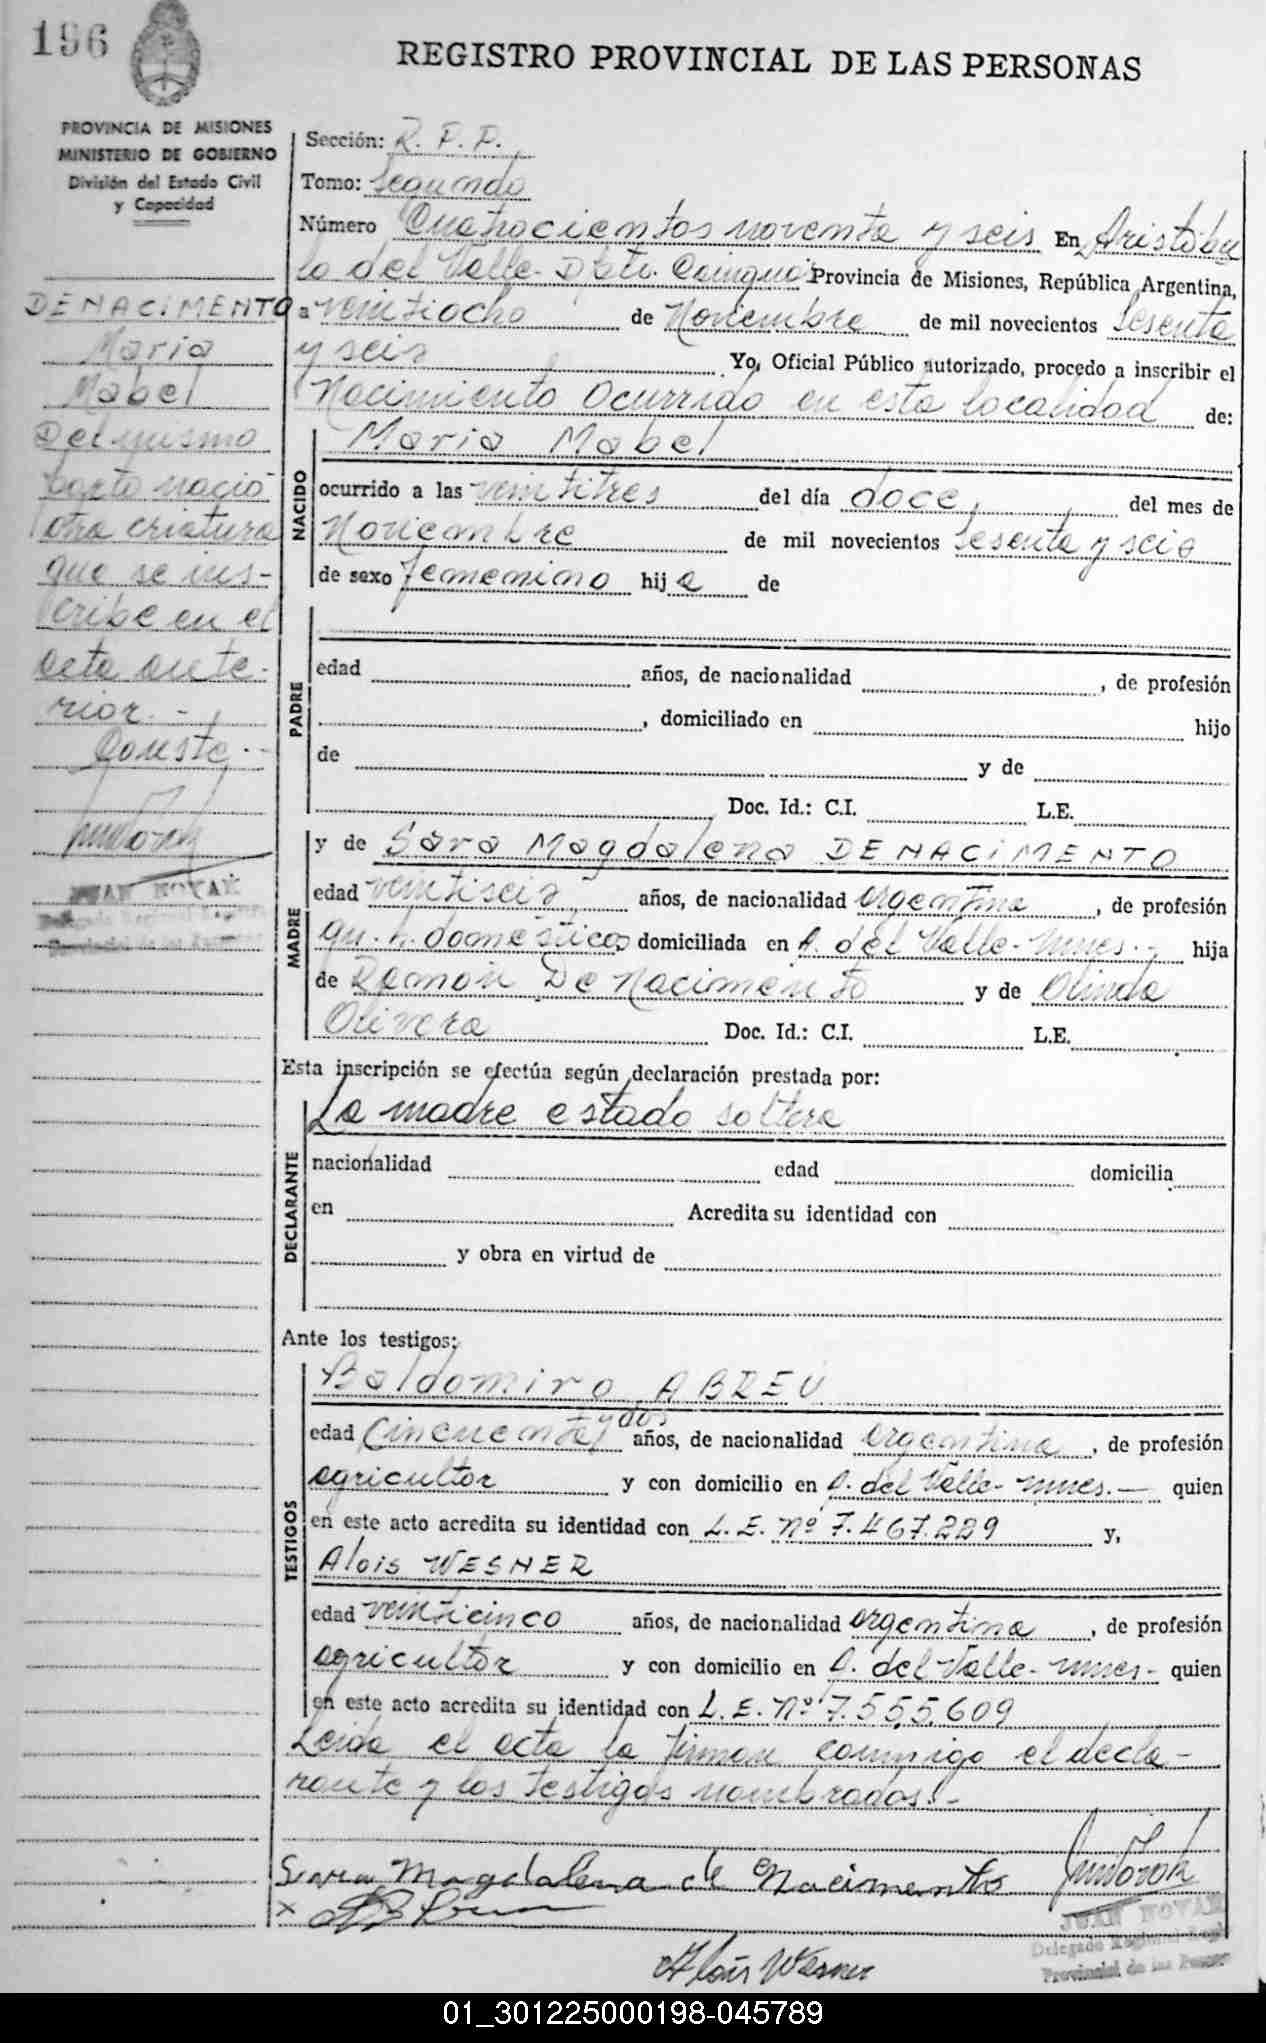 196
REGISTRO PROVINCIAL DE LAS PERSONAS
PROVINCIA DE MISIONES
MINISTERIO DE GOBIERNO
División del Estado Civil
y Capacidad
DENACIMENTO
Maria
Mabel
Del mismo
parto nació
otra criatura
que se ins-
cribe en el
acta ante-
rior.-
Conste.-
JUAN NOVAK
Delegado Regional Registro
Provincial de las Personas
Sección: R. P. P.
Tomo: Segundo
Número Cuatrocientos noventa y seis En Aristóbu
lo del Valle- Dpto. Cainguas Provincia de Misiones, República Argentina,
a veintiocho de Noviembre de mil novecientos sesenta
y seis Yo, Oficial Público autorizado, procedo a inscribir el
Nacimiento Ocurrido en esta localidad de:
NACIDO
Maria Mabel
ocurrido a las veintitres del día doce, del mes de
Noviembre de mil novecientos sesenta y seis
de sexo femenino hija de
PADRE
edad años, de nacionalidad , de profesión
, domiciliado en hijo
de y de
Doc. Id.: C.I. L.E.
MADRE
y de Sara Magdalena DENACIMENTO
edad veintiseis años, de nacionalidad argentina , de profesión
qu. h. domésticos domiciliada en A. del Valle- Mnes.- hija
de Ramón De Nacimento y de Olinda
Olivera Doc. Id.: C.I. L.E.
Esta inscripción se efectúa según declaración prestada por:
DECLARANTE
La madre estado soltera
nacionalidad edad domicilia
en Acredita su identidad con
y obra en virtud de
Ante los testigos:
TESTIGOS
Baldomiro ABREU
edad Cincuenta y dos años, de nacionalidad argentina , de profesión
agricultor y con domicilio en A. del Valle- Mnes.- quien
en este acto acredita su identidad con L. E. Nº 7.467.229 y,
Alois WESNER
edad veinticinco años, de nacionalidad argentina , de profesión
agricultor y con domicilio en A. del Valle- Mnes- quien
en este acto acredita su identidad con L. E. Nº 7.555.609
Leida el acta la firman conmigo el decla-
rante y los testigos nombrados.-
Sara Magdalena de Nacimento
x
JUAN NOVAK
Delegado Regional Regis
Provincial de las Person
Alois Wesner
01_301225000198-045789